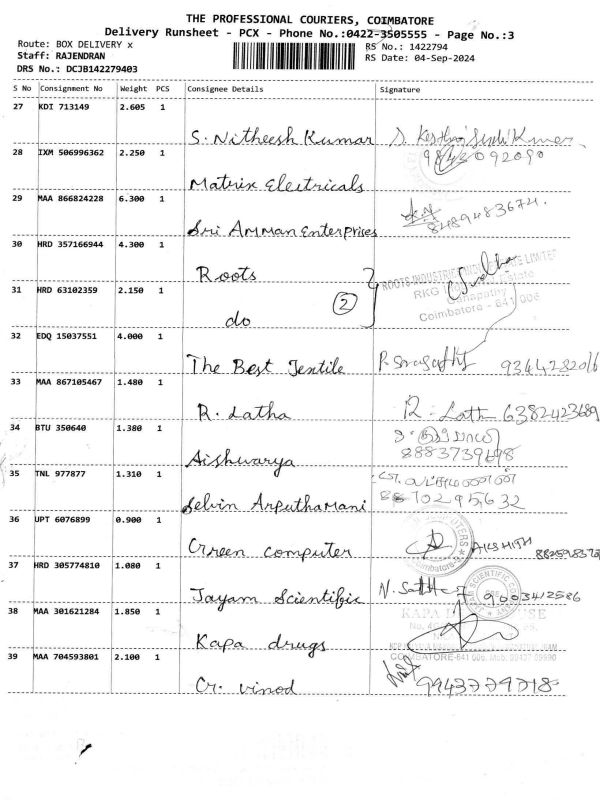 THE PROFESSIONAL COURIERS, COIMBATORE
Delivery Runsheet - PCX - Phone No.:0422-3505555 - Page No.:3
Route: BOX DELIVERY x RS No.: 1422794
Staff: RAJENDRAN RS Date: 04-Sep-2024
DRS No.: DCJB142279403
S No Consignment No Weight PCS Consignee Details Signature
27 KDI 713149 2.605 1
S. Nitheesh Kumar
9843092090
28 IXM 506996362 2.250 1
Matrix Electricals
29 MAA 866824228 6.300 1
8489483674.
Sri Amman Enterprises
30 HRD 357166944 4.300 1
Roots
ROOTS INDUSTRIES LIMITED
RKG Estate
Ganapathy
Coimbatore - 641 006
31 HRD 63102359 2.150 1
do 2
32 EDQ 15037551 4.000 1
The Best Textile 9344282016
33 MAA 867105467 1.480 1
R. Latha R. Lath 6382423689
34 BTU 350640 1.380 1
8883739698
Aishwarya
35 TNL 977877 1.310 1
Selvin Arputhamani 8870295632
36 UPT 6076899 0.900 1
Green computer
Coimbatore-6
37 HRD 305774810 1.080 1
Jayam Scientific 9003412586
JAYAM SCIENTIFIC COMPANY
38 MAA 301621284 1.850 1
KAPA HOUSE
Kapa drugs
COIMBATORE-641 006. Mob.
39 MAA 704593801 2.100 1
G. vinod 9943779718